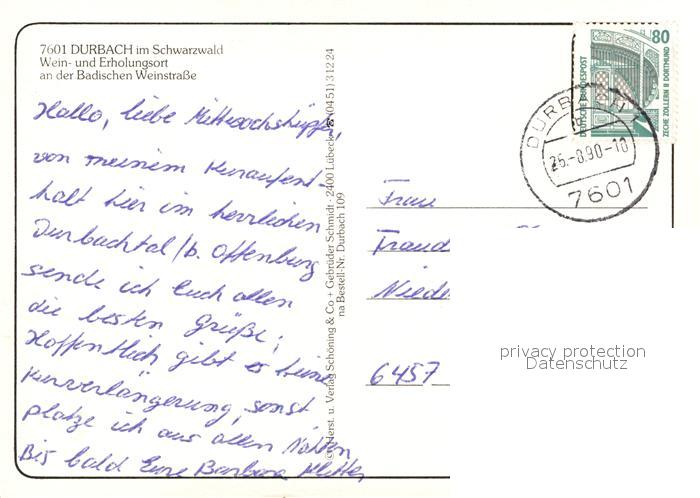 7601 DURBACH im Schwarzwald
Wein- und Erholungsort
an der Badischen Weinstraße
Hallo, liebe
von meinem Kuraufent-
halt hier im herrlichen
Durbachtal /b. Offenburg
sende ich Euch allen
die besten Grüße;
Hoffentlich gibt es keine
Kurverlängerung, sonst
platze ich aus allen Nähten
Bis bald Eure Barbara
Herst. u. Verlag Schöning & Co + Gebrüder Schmidt · 2400 Lübeck · ☎ (0451) 31224
na Bestell-Nr. Durbach 109
80
DEUTSCHE BUNDESPOST
ZECHE ZOLLERN II DORTMUND
DURBACH 1
-8.90-10
7601
Frau
6457
privacy protection
Datenschutz